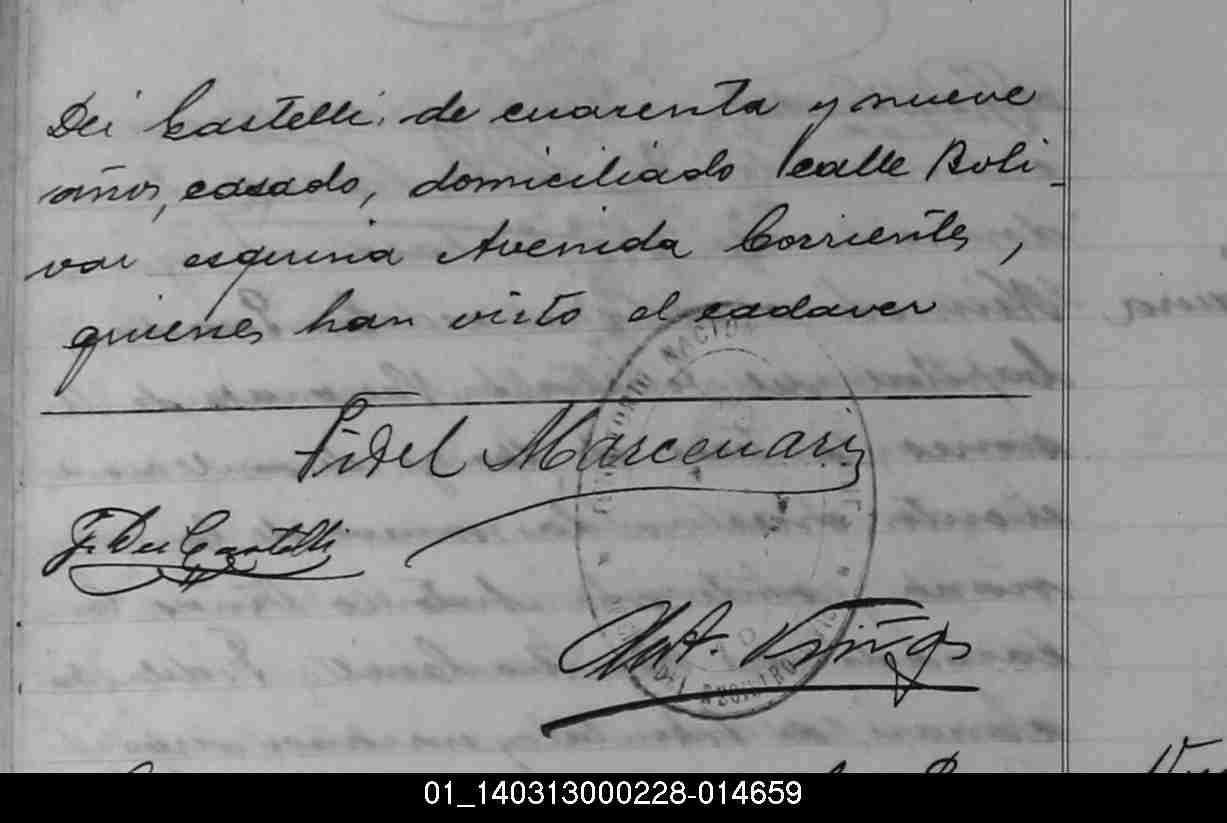 Dei Castelli, de cuarenta y nueve
años, casado, domiciliado calle Boli-
var esquina Avenida Corrientes,
quienes han visto el cadaver
Fidel Marcenari
F. Dei Castelli
Ant. Viñas
01_140313000228-014659